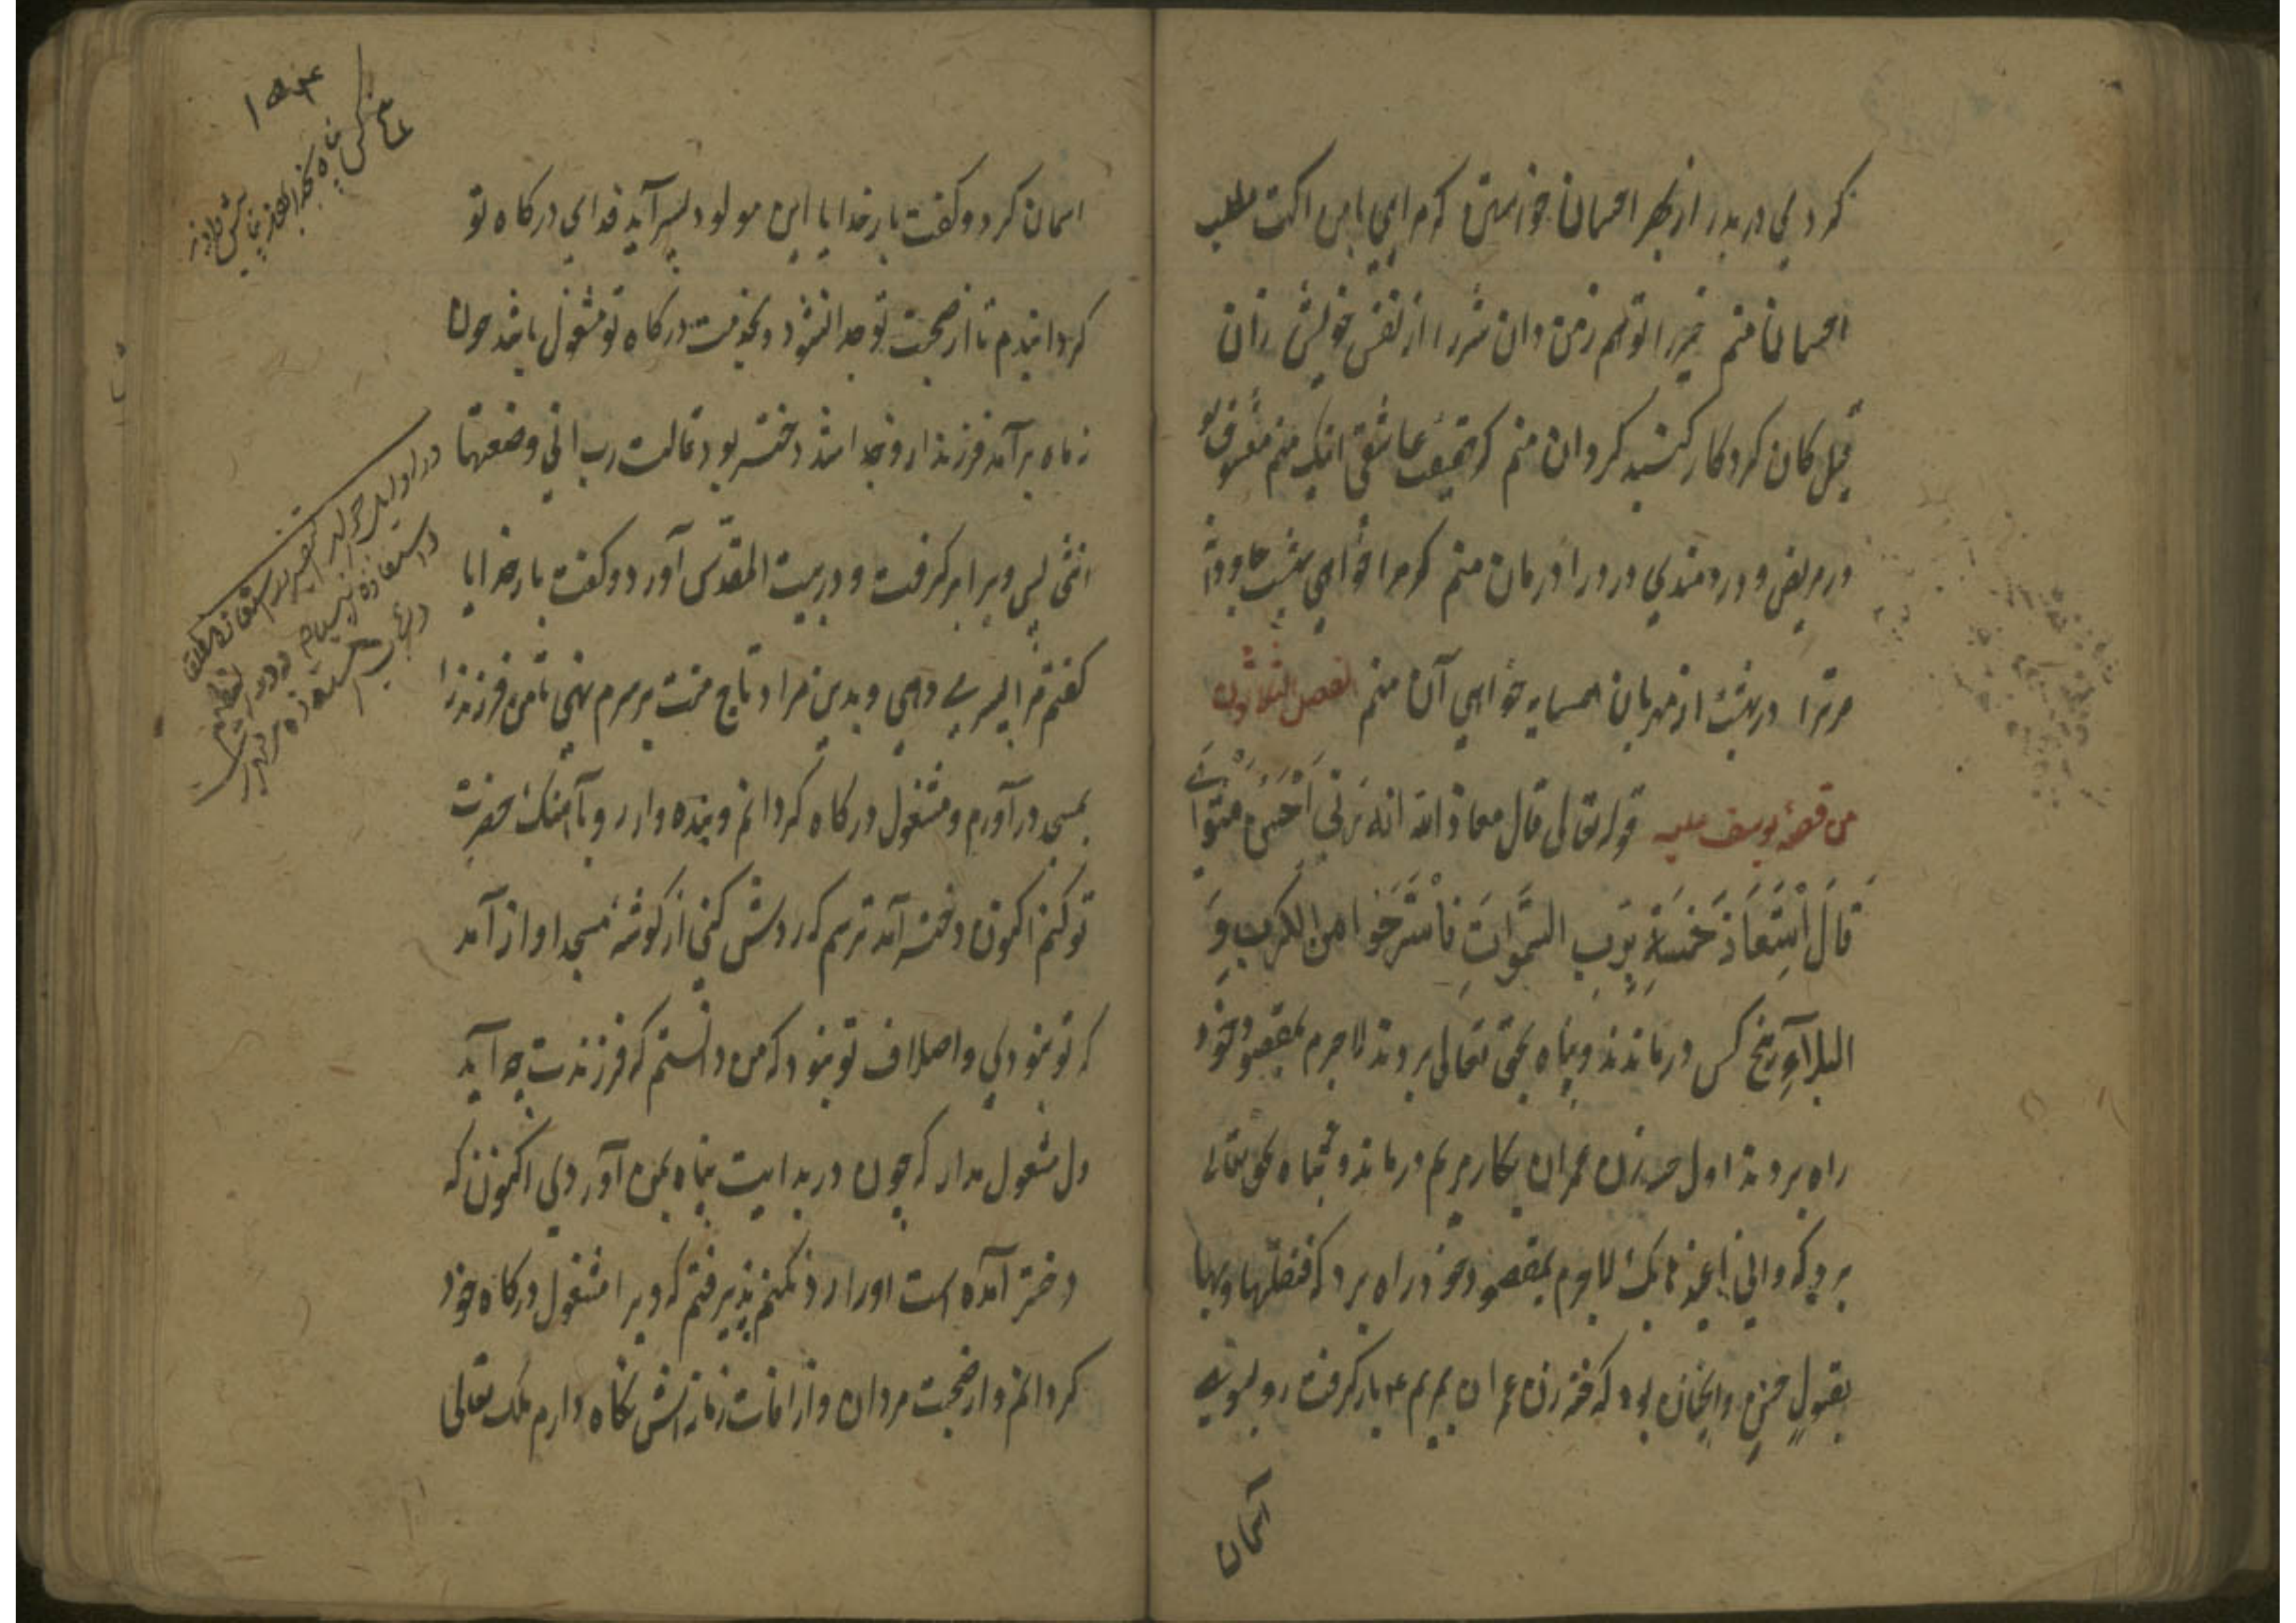 کرد بی در بدر از بهر احسان خواستن کر مرا می باین اکت مطلب
احسان منم خیر را تو هم زمن دان شر را از نفس خویش زان
قبل کان کردکار کنبد کردان منم کر حقیقت عاشقی اینک منم معشوق تو
ور مریض و دردمندی درد را درمان منم کر مرا خواهی بهشت جاودان
مر ترا در بهشت از مهربان همسایه خواهی آن منم الفصل الثلاثون
من قصه یوسف علیه قوله تعالی قال معاذ الله انه ربی احسن مثوای
قَالَ اسْتَعَاذَ خَمْسَة بِرَبِ السَّمَوَاتِ فَاسْتَرَحَوا من الکرب وَ
البلاء پنج کس درماندند و پناه بحق تعالی بردند لاجرم بمقصود خود
راه بردند اول حنه زن عمران بکار مریم درماند و پناه بحق تعالی
برد که وانی اعیذها بک لاجرم بمقصود خود راه برد که فتقبلها ربها
بقبول حسن و اینچنان بود که حنه زن عمران بمریم ع بار کرفت رو بسوی
آسمان
اسمان کرد و کفت بار خدایا این مولود پسر آید فدای درکاه تو
کردانیدم تا از صحبت تو جدا نشود و بخدمت درکاه تو مشغول باشد چون
نه ماه برآمد فرزند ازو جدا شد دختر بود قالت رب انی وضعتها
انثی پس ویرا برکرفت و در بیت المقدس آورد و کفت بار خدایا
کفتم مرا پسری دهی و بدین مراد تاج منت بر سرم نهی تا من فرزند را
بمسجد درآورم و مشغول درکاه کردانم و بنده وار رو باهنک حضرت
تو کنم اکنون دختر آمد ترسم که ردش کنی از کوشه مسجد اواز آمد
که تو نبودی و اصلاف تو نبود که من دانستم که فرزندت چه آید
دل مشغول مدار که چون در بدایت پناه بمن آوردی اکنون که
دختر آمده است او را رد نکنم پذیرفتم که ویرا مشغول درکاه خود
کردانم و از صحبت مردان و از افات زمانه اش نکاه دارم ملک تعالی